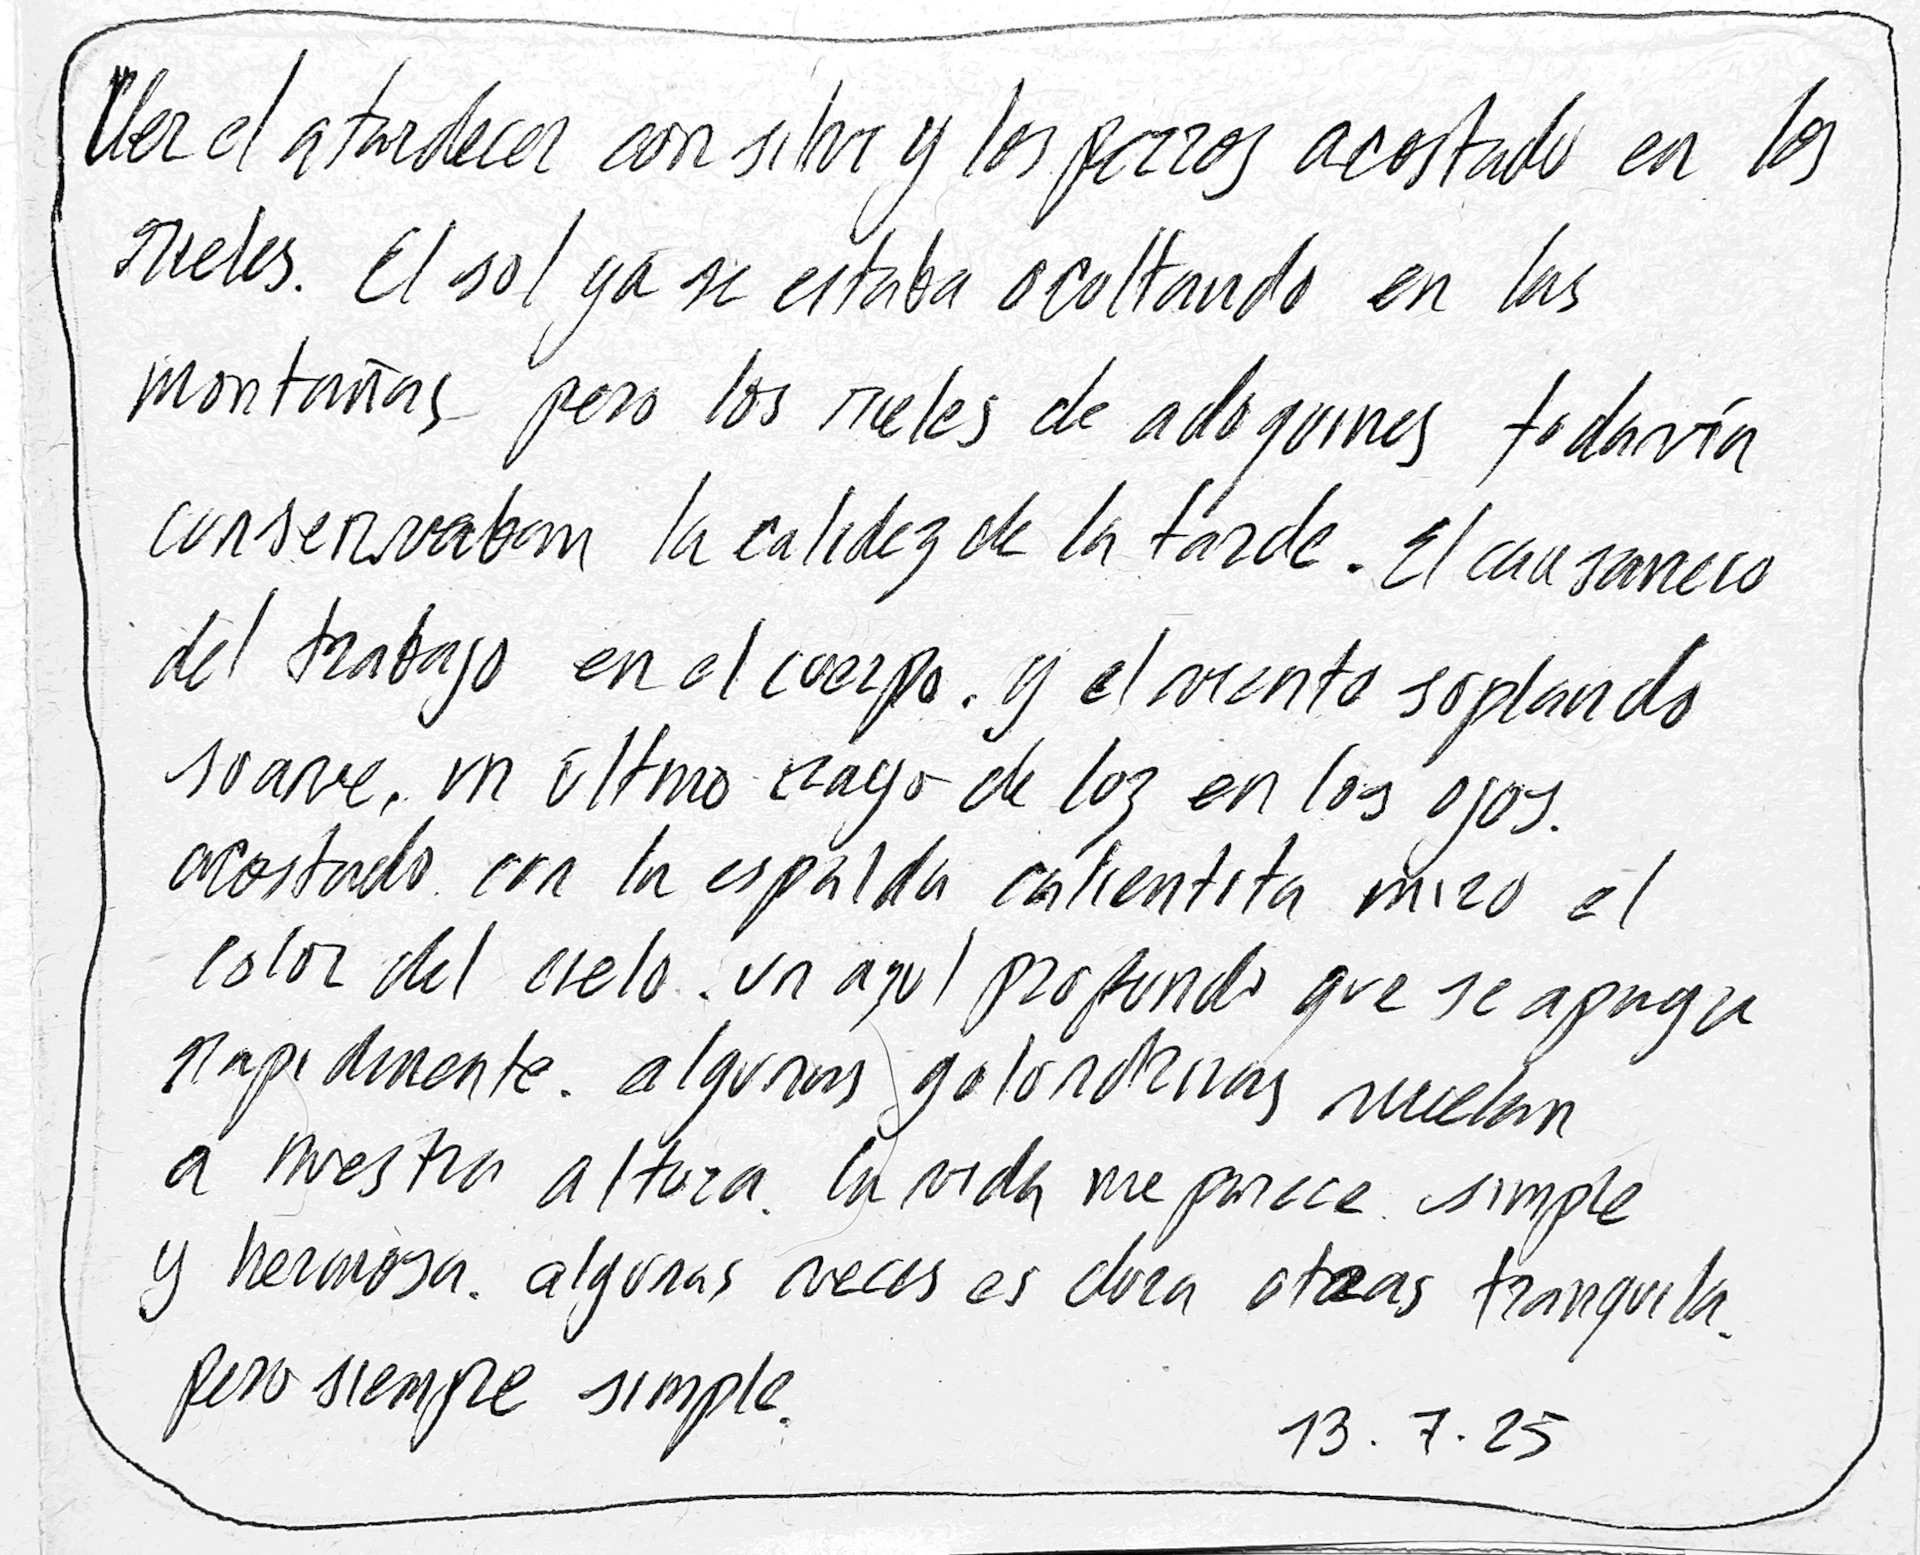 Ver el atardecer con silvi y los perros acostado en los
rieles. El sol ya se estaba ocultando en las
montañas pero los rieles de adoquines todavía
conservaban la calidez de la tarde. El causanecio
del trabajo en el cuerpo. y el viento soplando
suave. un último rayo de luz en los ojos.
acostado con la espalda calientita miro el
color del cielo. un azul profundo que se apaga
rapidmente. algunas golondrinas vuelan
a nuestra altura. la vida me parece simple
y hermosa. algunas veces es dura otras tranquila.
pero siempre simple.
13.7.25